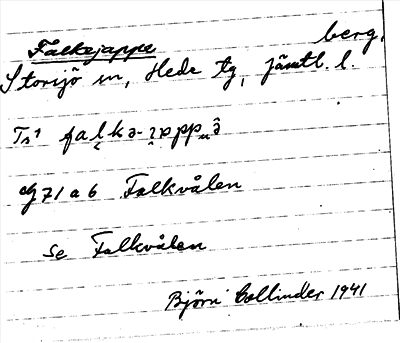 Falkejappe berg,
Storsjö sn, Hede tg, Jämtl. l.
Ts¹ fal̥kə-
cg 71 a 6 Falkvålen
Se Falkvålen
Björn Collinder 1941